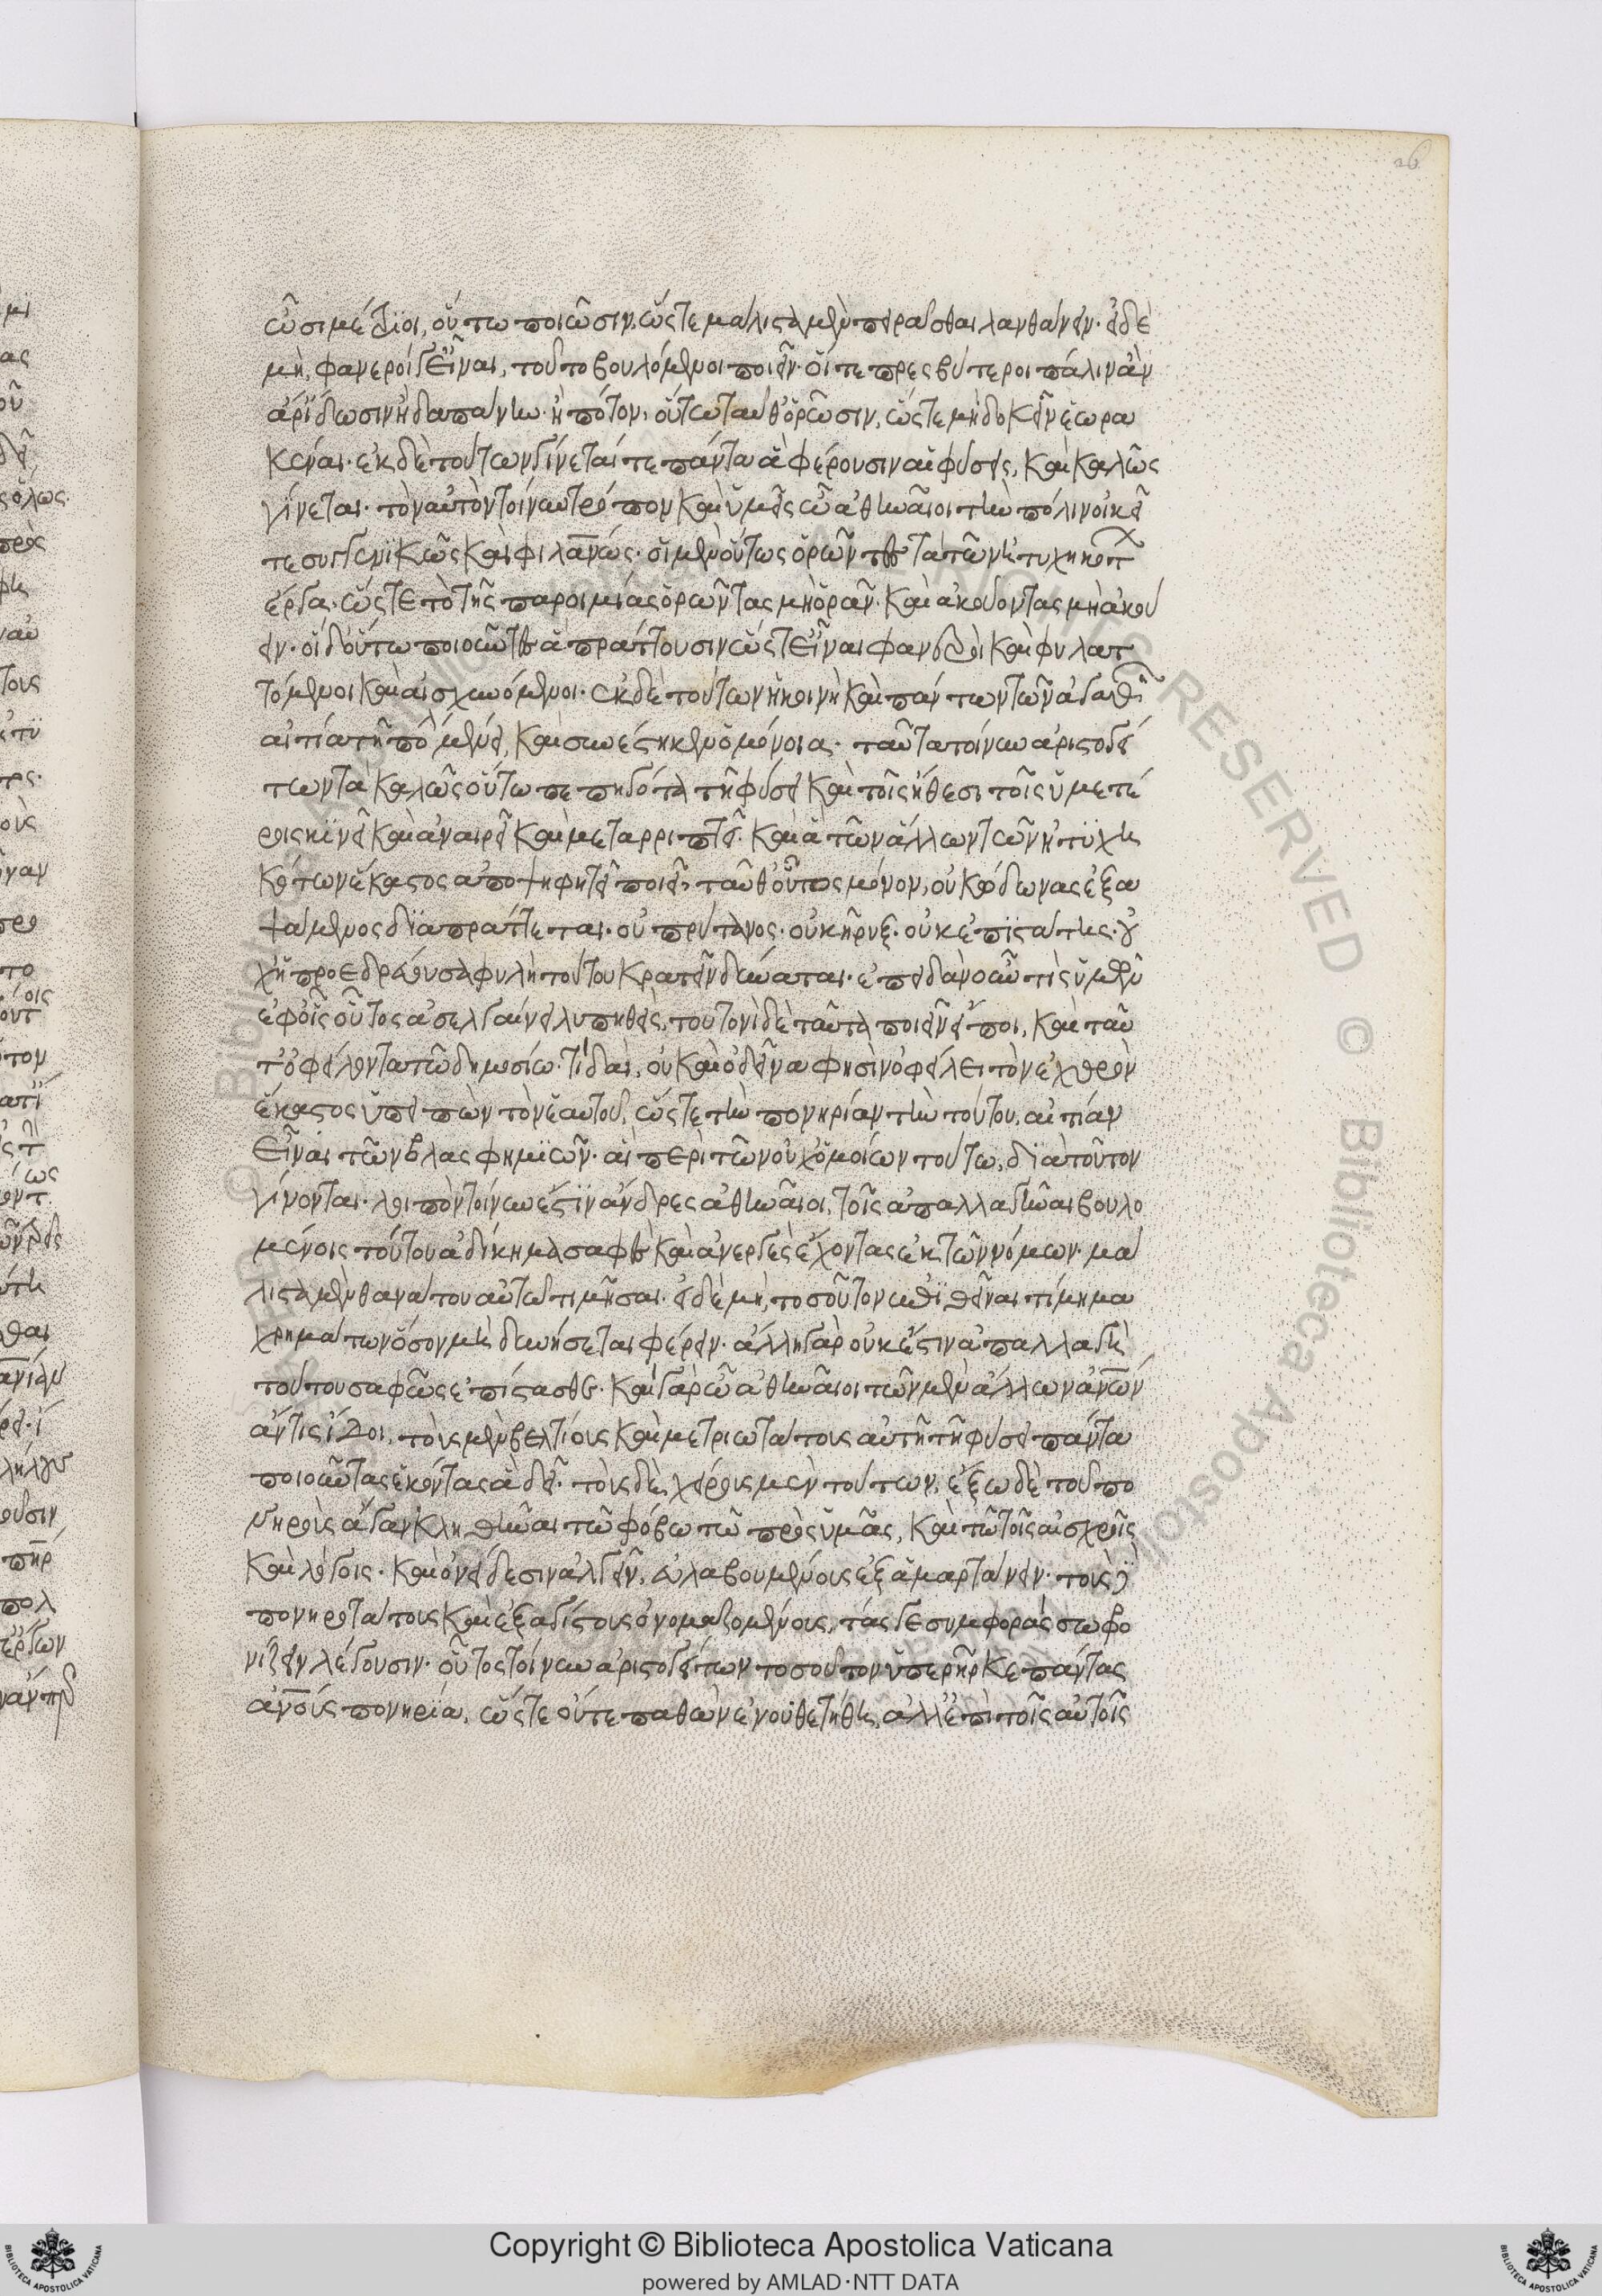 26
ὦσι μέτριοι, οὕτω ποιῶσιν, ὥστε μάλιστα μὲν πειρᾶσθαι λανθάνειν· εἰ δὲ
μὴ, φανεροί γε εἶναι, τοῦτο βουλόμενοι ποιεῖν· οἵ τε πρεσβύτεροι πάλιν ἂν
ἄρ' ἴδωσιν ἢ δαπάνην· ἢ πότον, οὕτω ταῦθ' ὁρῶσιν, ὥστε μὴ δοκεῖν ἑωρα
κέναι· ἐκ δὲ τούτων γίνεταί τε πάντα ἃ φέρουσιν αἱ φύσεις, καὶ καλῶς
γίνεται· τὸν αὐτὸν τοίνυν τρόπον καὶ ὑμεῖς ὦ ἀθηναῖοι τὴν πόλιν οἰκεῖ
τε συγγενικῶς καὶ φιλανώς· οἱ μὲν οὕτως ὁρῶντες τὰ τῶν ἠτυχηκότ
ἔργα· ὥστε τὸ τῆς παροιμίας ὁρῶντας μὴ ὁρᾶν· καὶ ἀκούοντας μὴ ἀκού
ειν· οἱ δ' οὕτω ποιοῦντες ἃ πράττουσιν ὥστε εἶναι φανεροὶ καὶ φυλατ
τόμενοι καὶ αἰσχυνόμενοι· ἐκ δὲ τούτων ἡ κοινὴ καὶ πάντων τῶν ἀγαθῶν
αἰτία τῇ πόλει μένει, καὶ συνέστηκεν ὁμόνοια· ταῦτα τοίνυν ἀριστογεί
των τὰ καλῶς οὕτω πεπηγότα τῇ φύσει καὶ τοῖς ἤθεσι τοῖς ὑμετέ
ροις κινεῖ καὶ ἀναιρεῖ καὶ μεταρριπτεῖ· καὶ ἃ τῶν ἄλλων τῶν ἠτυχη
κότων ἕκαστος ἀποψηφητεὶ ποιεῖ, ταῦθ' οὗτος μόνον, οὐ κώδωνας ἐξα
ψάμενος διαπράττεται· οὐ πρύτανος· οὐ κῆρυξ· οὐκ ἐπιστάτης· οὐ
χ ἡ προεδρεύουσα φυλὴ τούτου κρατεῖν δύναται· ἐπειδὰν οὖν τὶς ὑμῶν
ἐφ' οἷς οὗτος ἀσελγαίνει λυπηθεὶς, τουτονὶ δὲ ταῦτα ποιεῖν εἴποι, καὶ ταῦ
τ' ὀφείλοντα τῷ δημοσίῳ· τί δαὶ, οὐ καὶ ὁ δεῖνα φησὶν ὀφείλει τὸν ἐχθρὸν
ἕκαστος ὑπειπὼν τὸν ἑαυτοῦ, ὥστε τὴν πονηρίαν τὴν τούτου, αἰτίαν
εἶναι τῶν βλασφημιῶν· αἳ περὶ τῶν οὐχ ὁμοίων τούτω, διὰ τοῦτον
γίνονται· λοιπὸν τοίνυν ἐστὶν ἄνδρες ἀθηναῖοι, τοῖς ἀπαλλαγῆναι βουλο
μένοις τούτου ἀδίκημα σαφὲς καὶ ἀνεργὲς ἔχοντας ἐκ τῶν νόμων· μά
λιστα μὲν θανάτου αὐτῶ τιμῆσαι· εἰ δὲ μὴ, τοσοῦτον ἀναθεῖναι τίμημα
χρημάτων ὅσον μὴ δυνήσεται φέρειν· ἄλλη γὰρ οὐκ ἔστιν ἀπαλλαγὴ
τούτου σαφῶς ἐπίστασθε· καὶ γὰρ ὦ ἀθηναῖοι τῶν μὲν ἄλλων ἀνῶν
ἄν τις ἴδοι, τοὺς μὲν βελτίους καὶ μετριωτάτους αὐτῇ τῇ φύσει πάντα
ποιοῦντας ἑκόντας ἃ δεῖ· τοὺς δὲ, χείρους μὲν τούτων, ἔξω δὲ τοῦ πο
νηροὺς ἄγαν κληθῆναι τῶ φόβω τῶ πρὸς ὑμᾶς, καὶ τῶ τοῖς αἰσχροῖς
καὶ λόγοις· καὶ ὀνείδεσιν ἀλγεῖν, εὐλαβουμένους ἐξαμαρτάνειν· τοὺς δὲ
πονηροτάτους καὶ ἐξαγίστους ὀνομαζομένους, τάς γε συμφορὰς σωφρο
νίζειν λέγουσιν· οὗτος τοίνυν ἀριστογείτων τοσοῦτον ὑπερῆρκε πάντας
ἀνους πονηρία, ὥστε οὔτε παθὼν ἐνουθετήθη, ἀλλ' ἐπὶ τοῖς αὐτοῖς
Copyright © Biblioteca Apostolica Vaticana
powered by AMLAD·NTT DATA